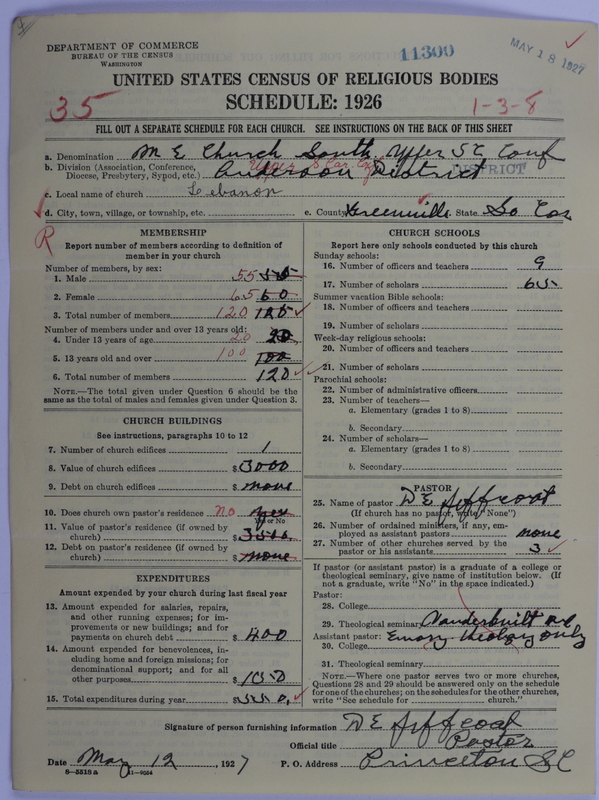 DEPARTMENT OF COMMERCE
BUREAU OF THE CENSUS
WASHINGTON
11300
MAY 18 1927
UNITED STATES CENSUS OF RELIGIOUS BODIES
SCHEDULE: 1926
35
1-3-8
FILL OUT A SEPARATE SCHEDULE FOR EACH CHURCH. SEE INSTRUCTIONS ON THE BACK OF THIS SHEET
a. Denomination M E Church South, Upper S C Conf
b. Division (Association, Conference, Diocese, Presbytery, Synod, etc.) Anderson District DISTRICT
c. Local name of church Lebanon
d. City, town, village, or township, etc. e. County Greenville State So Car
R
MEMBERSHIP
Report number of members according to definition of member in your church
Number of members, by sex:
1. Male 55
2. Female 65 60
3. Total number of members 120
Number of members under and over 13 years old:
4. Under 13 years of age 20 20
5. 13 years old and over 100 100
6. Total number of members 120
NOTE.—The total given under Question 6 should be the same as the total of males and females given under Question 3.
CHURCH BUILDINGS
See instructions, paragraphs 10 to 12
7. Number of church edifices 1
8. Value of church edifices $ 3000
9. Debt on church edifices $ none
10. Does church own pastor's residence no yes
Yes or No
11. Value of pastor's residence (if owned by church) $ 3500
12. Debt on pastor's residence (if owned by church) $ none
EXPENDITURES
Amount expended by your church during last fiscal year
13. Amount expended for salaries, repairs, and other running expenses; for improvements or new buildings; and for payments on church debt $ 400
14. Amount expended for benevolences, including home and foreign missions; for denominational support; and for all other purposes $ 150
15. Total expenditures during year $ 550.
CHURCH SCHOOLS
Report here only schools conducted by this church
Sunday schools:
16. Number of officers and teachers 9
17. Number of scholars 65
Summer vacation Bible schools:
18. Number of officers and teachers
19. Number of scholars
Week-day religious schools:
20. Number of officers and teachers
21. Number of scholars
Parochial schools:
22. Number of administrative officers
23. Number of teachers—
a. Elementary (grades 1 to 8)
b. Secondary
24. Number of scholars—
a. Elementary (grades 1 to 8)
b. Secondary
PASTOR
25. Name of pastor D E Jeffcoat
(If church has no pastor, write "None")
26. Number of ordained ministers, if any, employed as assistant pastors none
27. Number of other churches served by the pastor or his assistants 3
If pastor (or assistant pastor) is a graduate of a college or theological seminary, give name of institution below. (If not a graduate, write "No" in the space indicated.)
Pastor:
28. College
29. Theological seminary Vanderbuilt and
Assistant pastor: Emory theology only
30. College
31. Theological seminary
NOTE.—Where one pastor serves two or more churches, Questions 28 and 29 should be answered only on the schedule for one of the churches; on the schedules for the other churches, write "See schedule for church."
Signature of person furnishing information D E Jeffcoat
Official title Pastor
Date May 12, 1927 P. O. Address Princeton S C
8-5318a 11-9054